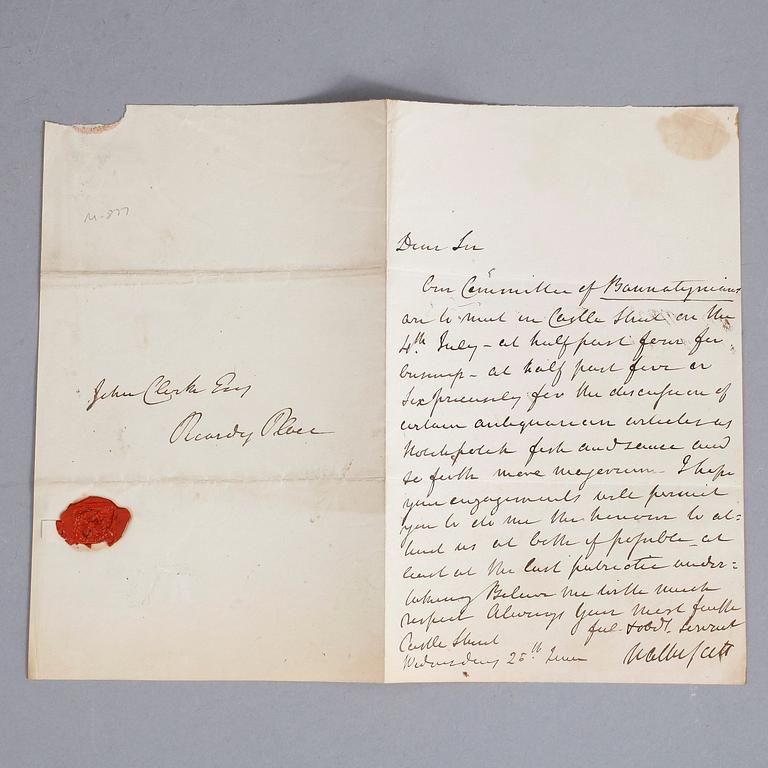 M-877
John Clerk Esq
Picardy Place
Dear Sir
Our Committee of Bannatynians
are to meet in Castle Street on the
4th July - at half past four for
business - at half past five or
six precisely for the discussion of
certain antiquarian articles as
Hotchpotch fish and sauce and
so forth more majorum. I hope
your engagements will permit
you to do me the honour to at=
tend us at both if possible at
least at the last patriotic under=
taking Believe me with much
respect Always Your most faith
ful & obdt. servant
Castle Street
Wednesday 25th June
Walter Scott